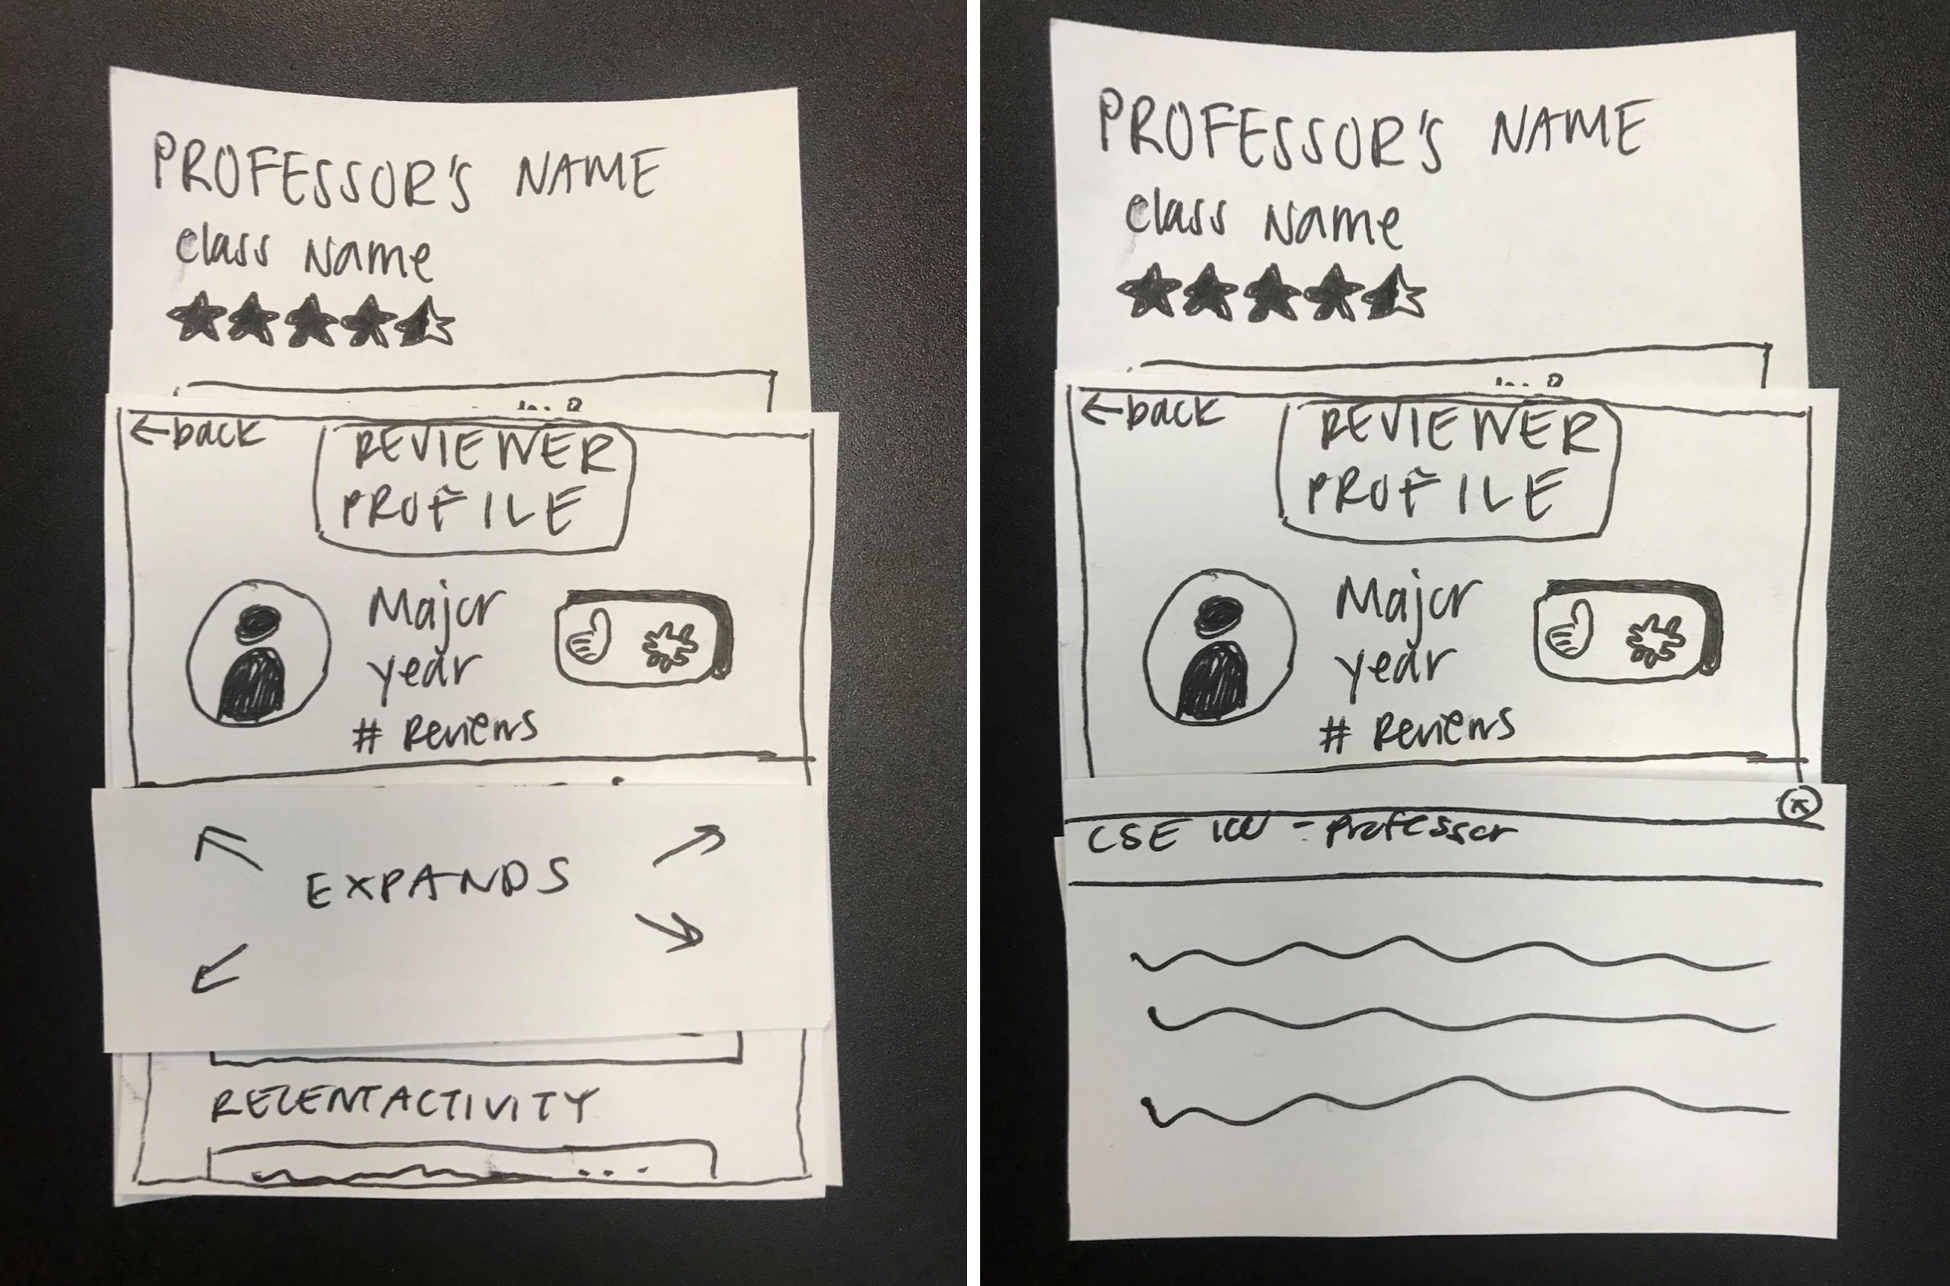 PROFESSOR'S NAME
Class Name
←back
REVIEWER
PROFILE
Major
year
# Reviews
EXPANDS
RECENT ACTIVITY
...
PROFESSOR'S NAME
Class Name
←back
REVIEWER
PROFILE
Major
year
# Reviews
CSE 100 - Professor